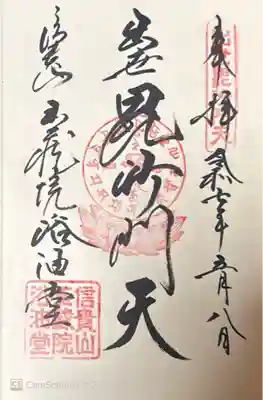 奉拝 令和七年五月八日
出世毘沙門天
信貴山 玉蔵院 浴油堂
信貴山
玉蔵院
浴油堂
CS CamScanner